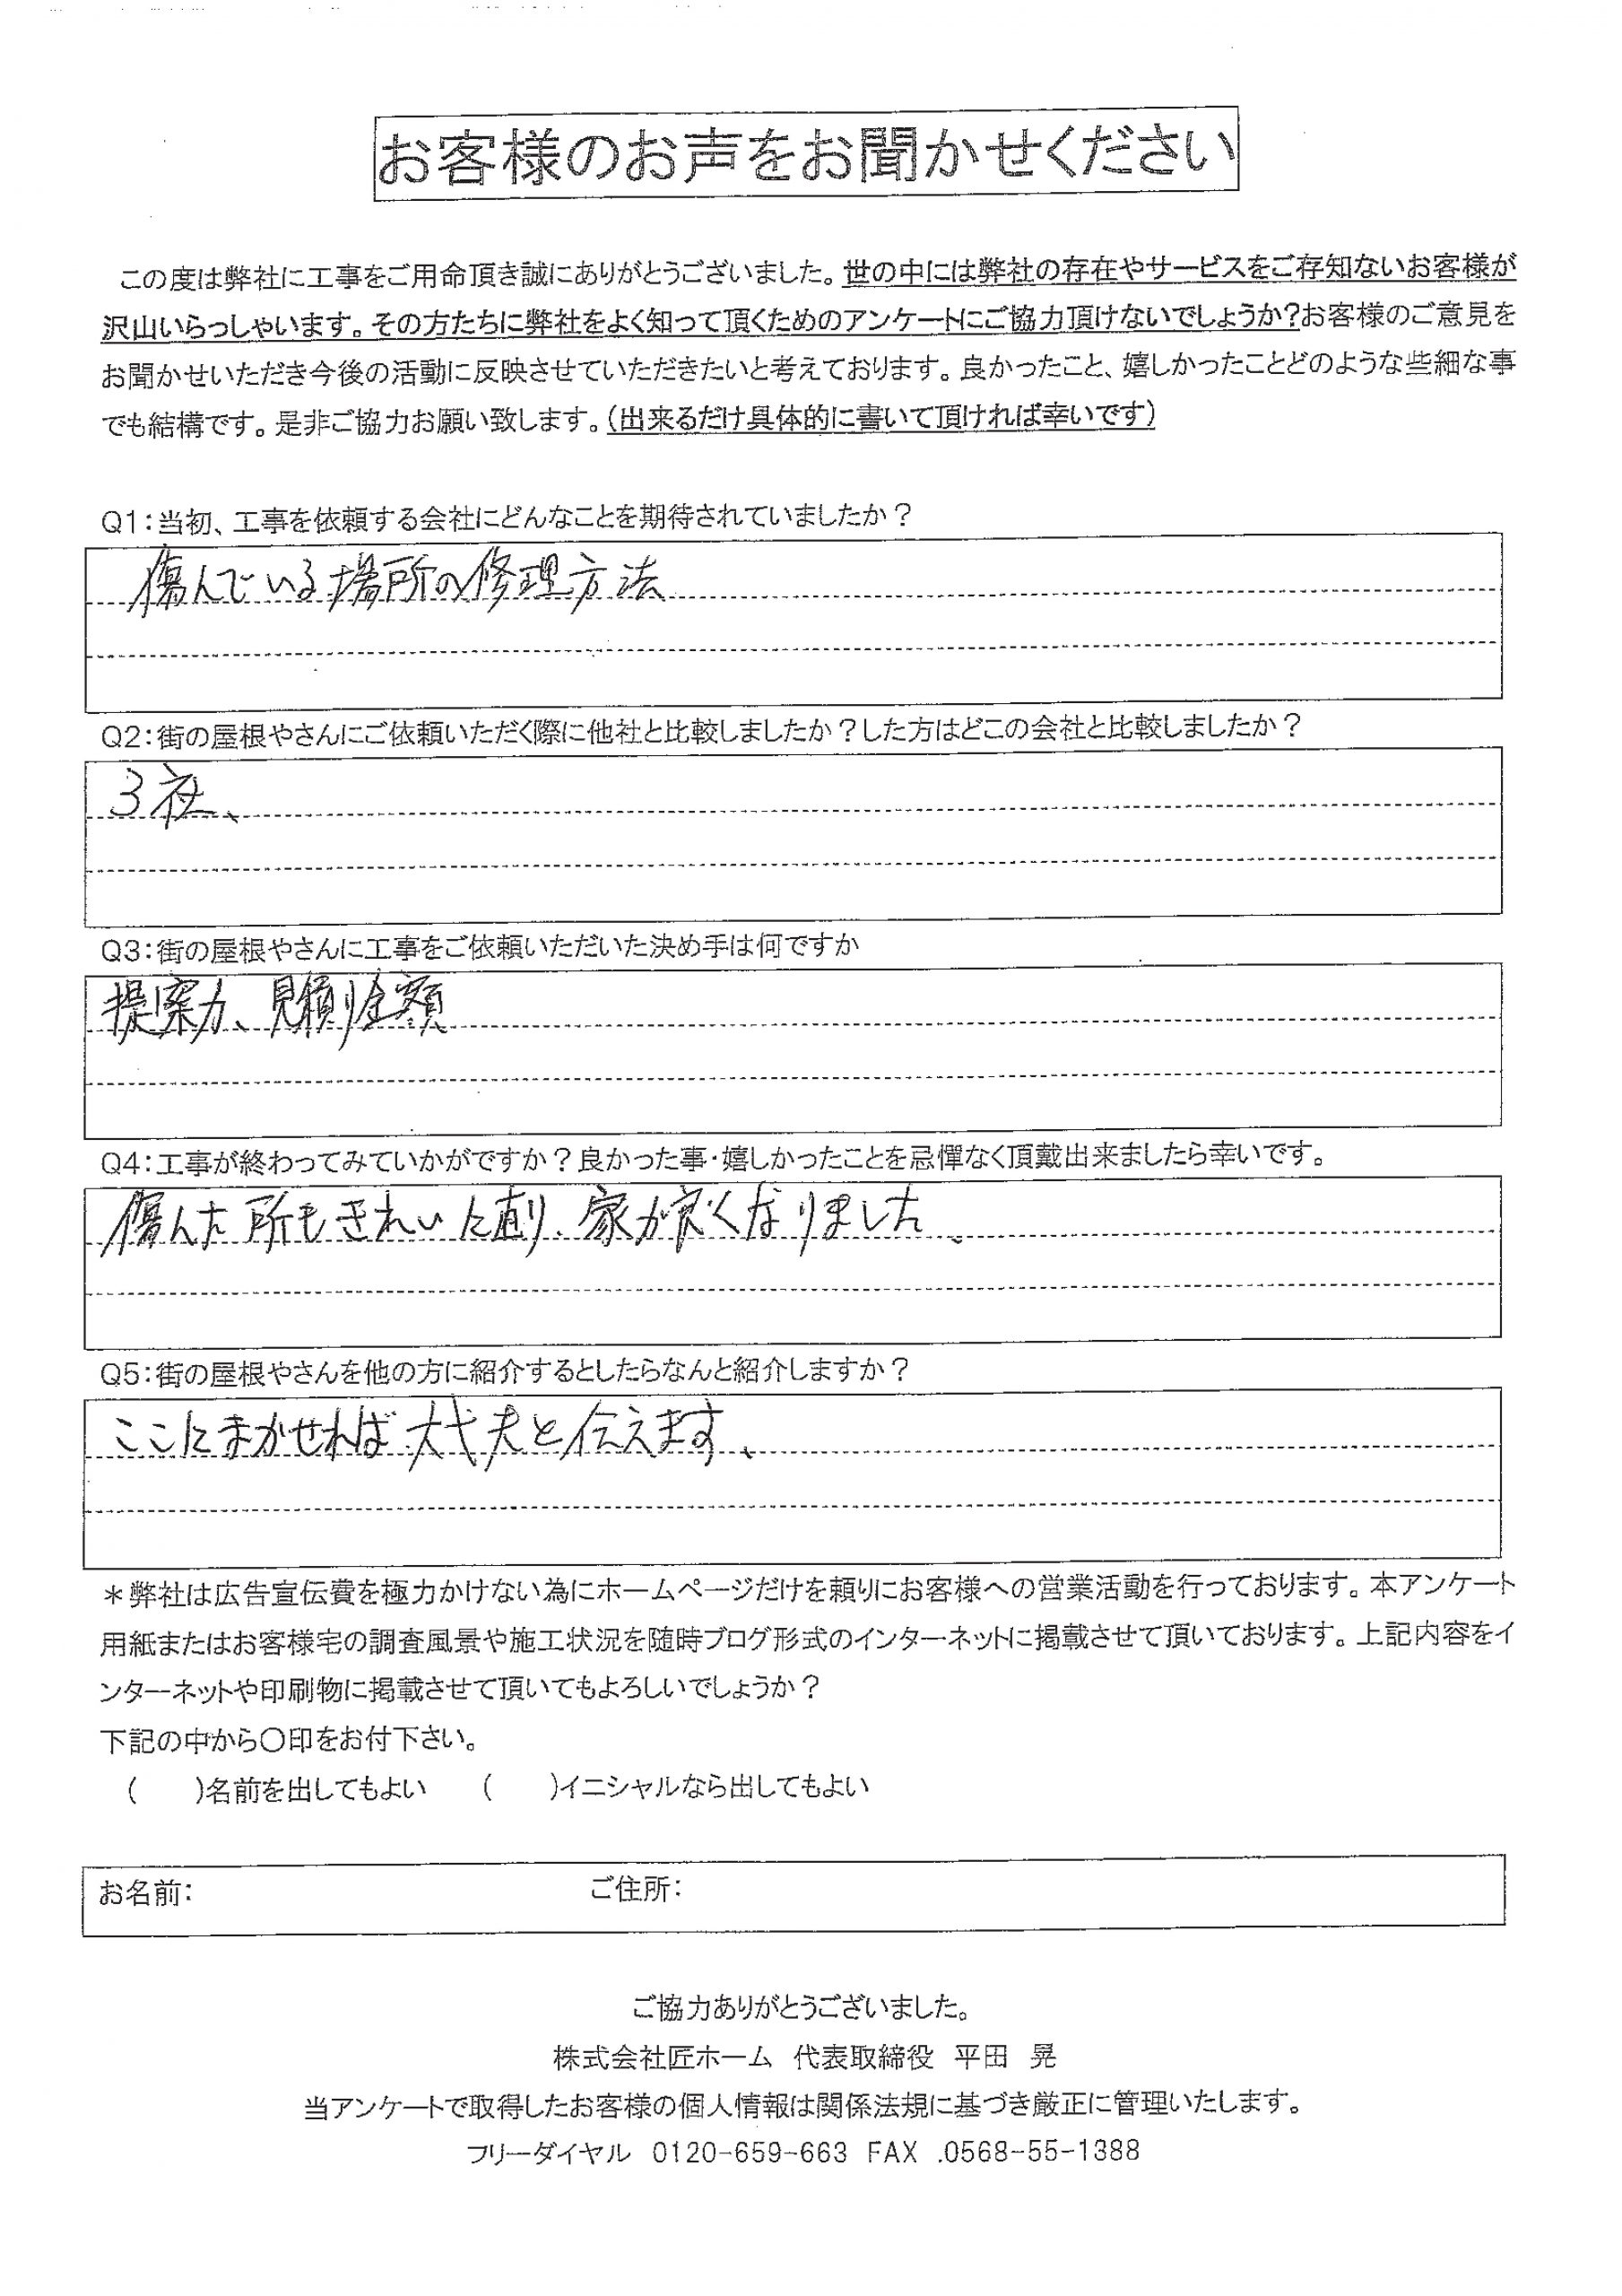 お客様のお声をお聞かせください
この度は弊社に工事をご用命頂き誠にありがとうございました。世の中には弊社の存在やサービスをご存知ないお客様が
沢山いらっしゃいます。その方たちに弊社をよく知って頂くためのアンケートにご協力頂けないでしょうか?お客様のご意見を
お聞かせいただき今後の活動に反映させていただきたいと考えております。良かったこと、嬉しかったことどのような些細な事
でも結構です。是非ご協力お願い致します。(出来るだけ具体的に書いて頂ければ幸いです)
Q1:当初、工事を依頼する会社にどんなことを期待されていましたか?
傷んでいる場所の修理方法
Q2:街の屋根やさんにご依頼いただく際に他社と比較しましたか?した方はどこの会社と比較しましたか?
3社、
Q3:街の屋根やさんに工事をご依頼いただいた決め手は何ですか
提案力、見積り金額
Q4:工事が終わってみていかがですか?良かった事・嬉しかったことを忌憚なく頂戴出来ましたら幸いです。
傷んだ所もきれいに直り、家が良くなりました、
Q5:街の屋根やさんを他の方に紹介するとしたらなんと紹介しますか?
ここにまかせれば大丈夫と伝えます、
*弊社は広告宣伝費を極力かけない為にホームページだけを頼りにお客様への営業活動を行っております。本アンケート
用紙またはお客様宅の調査風景や施工状況を随時ブログ形式のインターネットに掲載させて頂いております。上記内容をイ
ンターネットや印刷物に掲載させて頂いてもよろしいでしょうか?
下記の中から〇印をお付下さい。
(　　)名前を出してもよい　　(　　)イニシャルなら出してもよい
お名前:　　ご住所:
ご協力ありがとうございました。
株式会社匠ホーム　代表取締役　平田　晃
当アンケートで取得したお客様の個人情報は関係法規に基づき厳正に管理いたします。
フリーダイヤル　0120-659-663 FAX .0568-55-1388